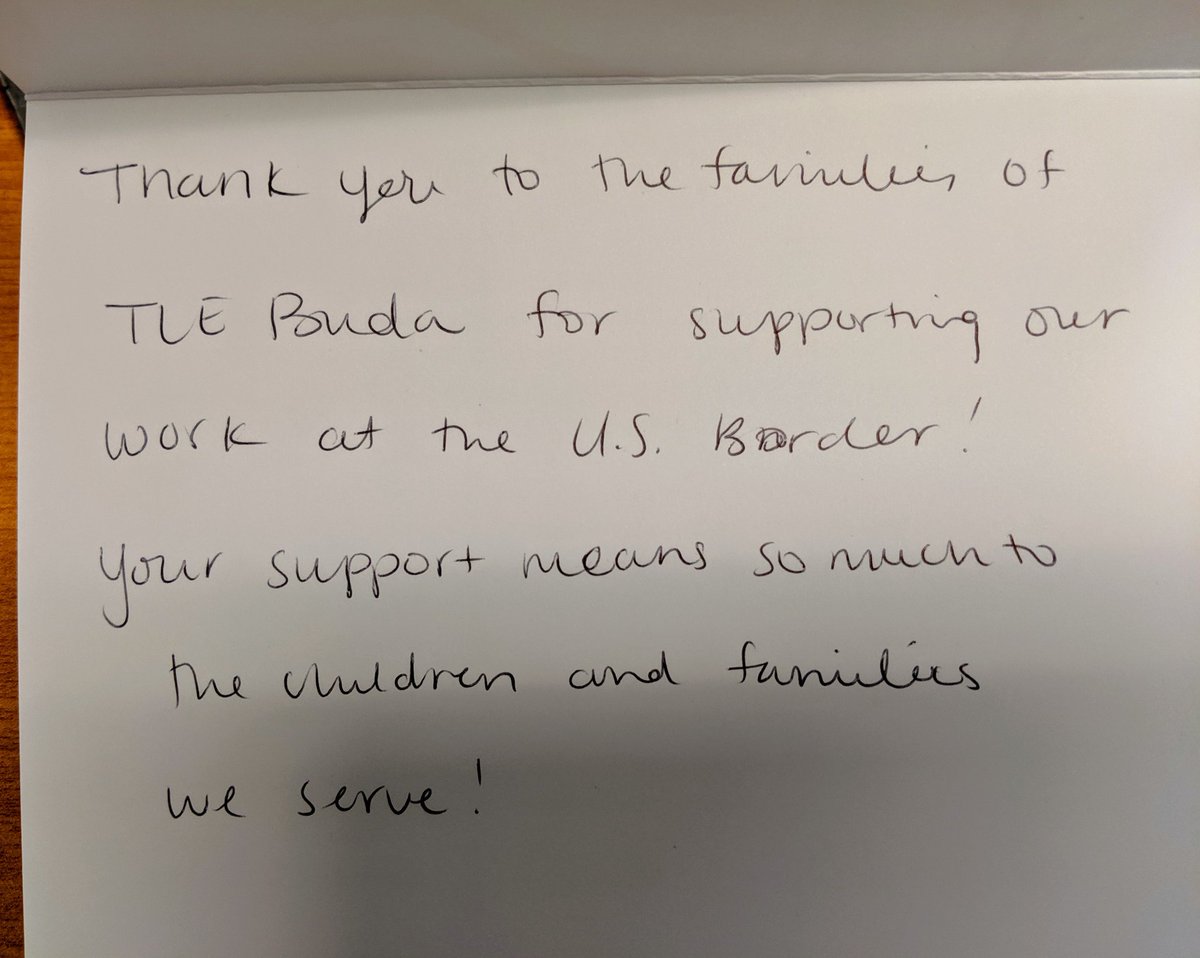 Thank you to the families of
TLE Buda for supporting our
work at the U.S. Border!
Your support means so much to
the children and families
we serve!